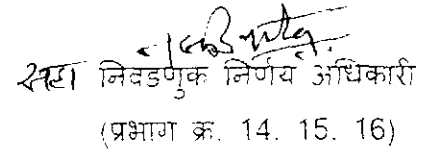 सहा निवडणुक निर्णय अधिकारी
(प्रभाग क्र. 14. 15. 16)